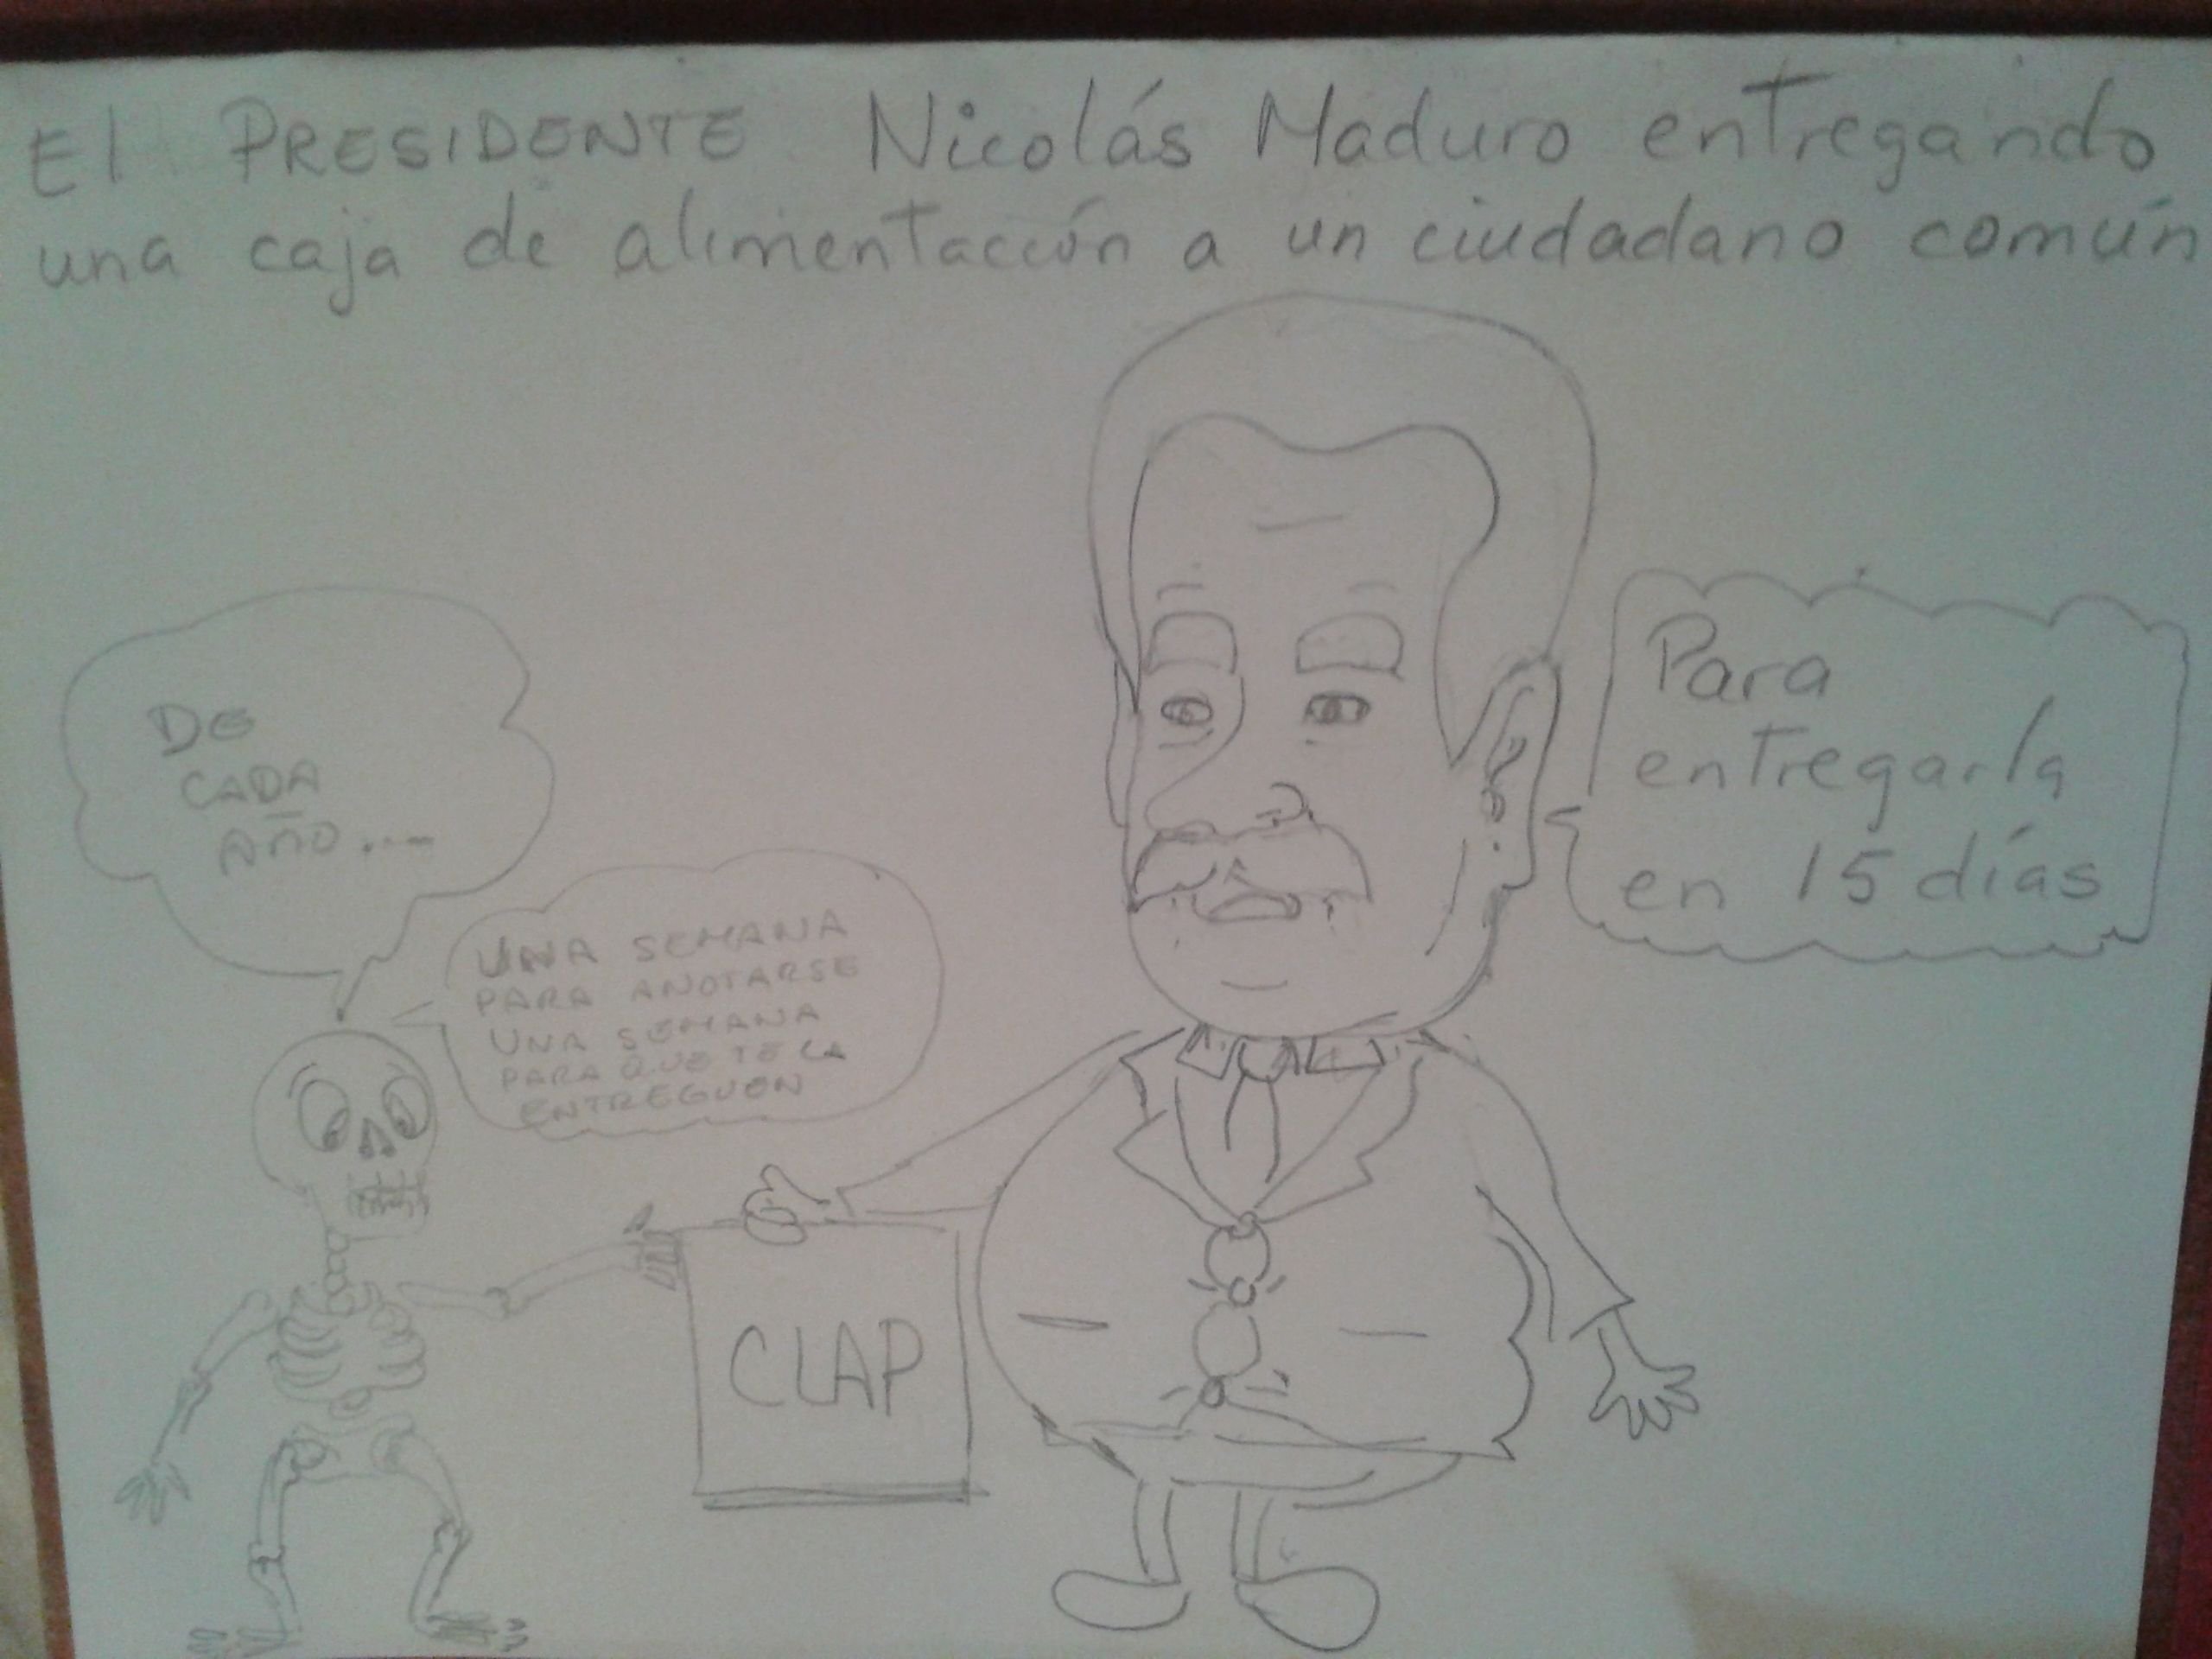 El PRESIDENTE Nicolás Maduro entregando
una caja de alimentación a un ciudadano común
DE
CADA
AÑO....
UNA SEMANA
PARA ANOTARSE
UNA SEMANA
PARA QUE TE LA
ENTREGUEN
Para
entregarla
en 15 días
CLAP